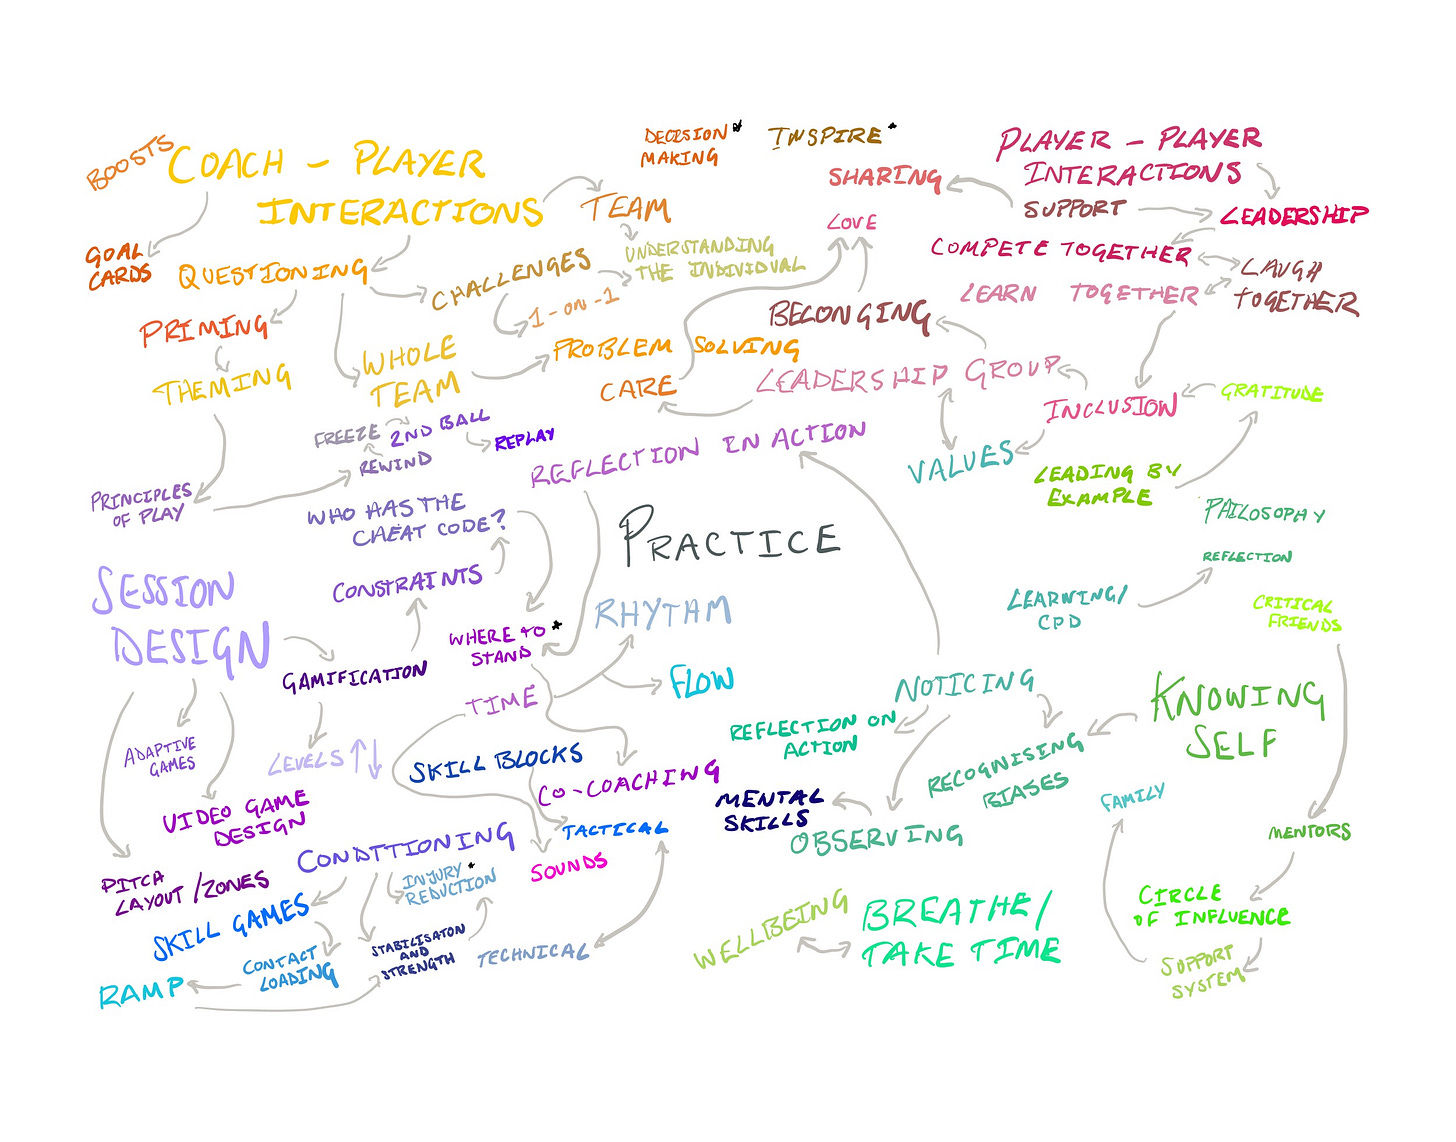 BOOSTS
COACH - PLAYER
INTERACTIONS
GOAL
CARDS
QUESTIONING
PRIMING
THEMING
CHALLENGES
1-ON-1
WHOLE
TEAM
PROBLEM SOLVING
TEAM
UNDERSTANDING
THE INDIVIDUAL
DECISION*
MAKING
INSPIRE*
SHARING
LOVE
PLAYER - PLAYER
INTERACTIONS
SUPPORT
LEADERSHIP
COMPETE TOGETHER
LAUGH
TOGETHER
LEARN TOGETHER
BELONGING
LEADERSHIP GROUP
CARE
INCLUSION
GRATITUDE
VALUES
LEADING BY
EXAMPLE
FREEZE
2ND BALL
REWIND
REPLAY
REFLECTION IN ACTION
PRINCIPLES
OF PLAY
WHO HAS THE
CHEAT CODE?
PRACTICE
PHILOSOPHY
REFLECTION
LEARNING/
CPD
CRITICAL
FRIENDS
SESSION
DESIGN
CONSTRAINTS
GAMIFICATION
WHERE TO*
STAND
RHYTHM
TIME
FLOW
NOTICING
KNOWING
SELF
REFLECTION ON
ACTION
RECOGNISING
BIASES
ADAPTIVE
GAMES
LEVELS ↑↓
SKILL BLOCKS
CO-COACHING
MENTAL
SKILLS
OBSERVING
FAMILY
MENTORS
VIDEO GAME
DESIGN
CONDITIONING
TACTICAL
SOUNDS
INJURY*
REDUCTION
PITCH
LAYOUT/ZONES
SKILL GAMES
STABILISATON
AND
STRENGTH
TECHNICAL
CONTACT
LOADING
RAMP
WELLBEING
BREATHE/
TAKE TIME
CIRCLE
OF INFLUENCE
SUPPORT
SYSTEM